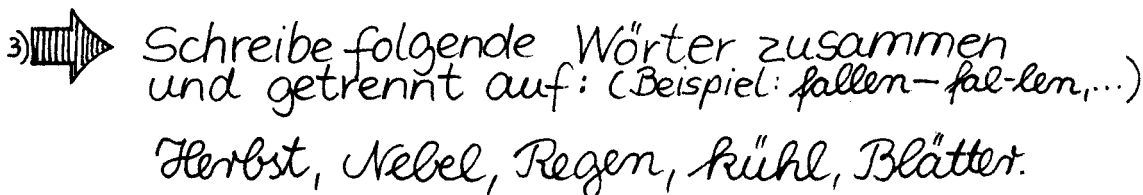 3) Schreibe folgende Wörter zusammen
und getrennt auf: (Beispiel: fallen – fal-len,...)
Herbst, Nebel, Regen, kühl, Blätter.